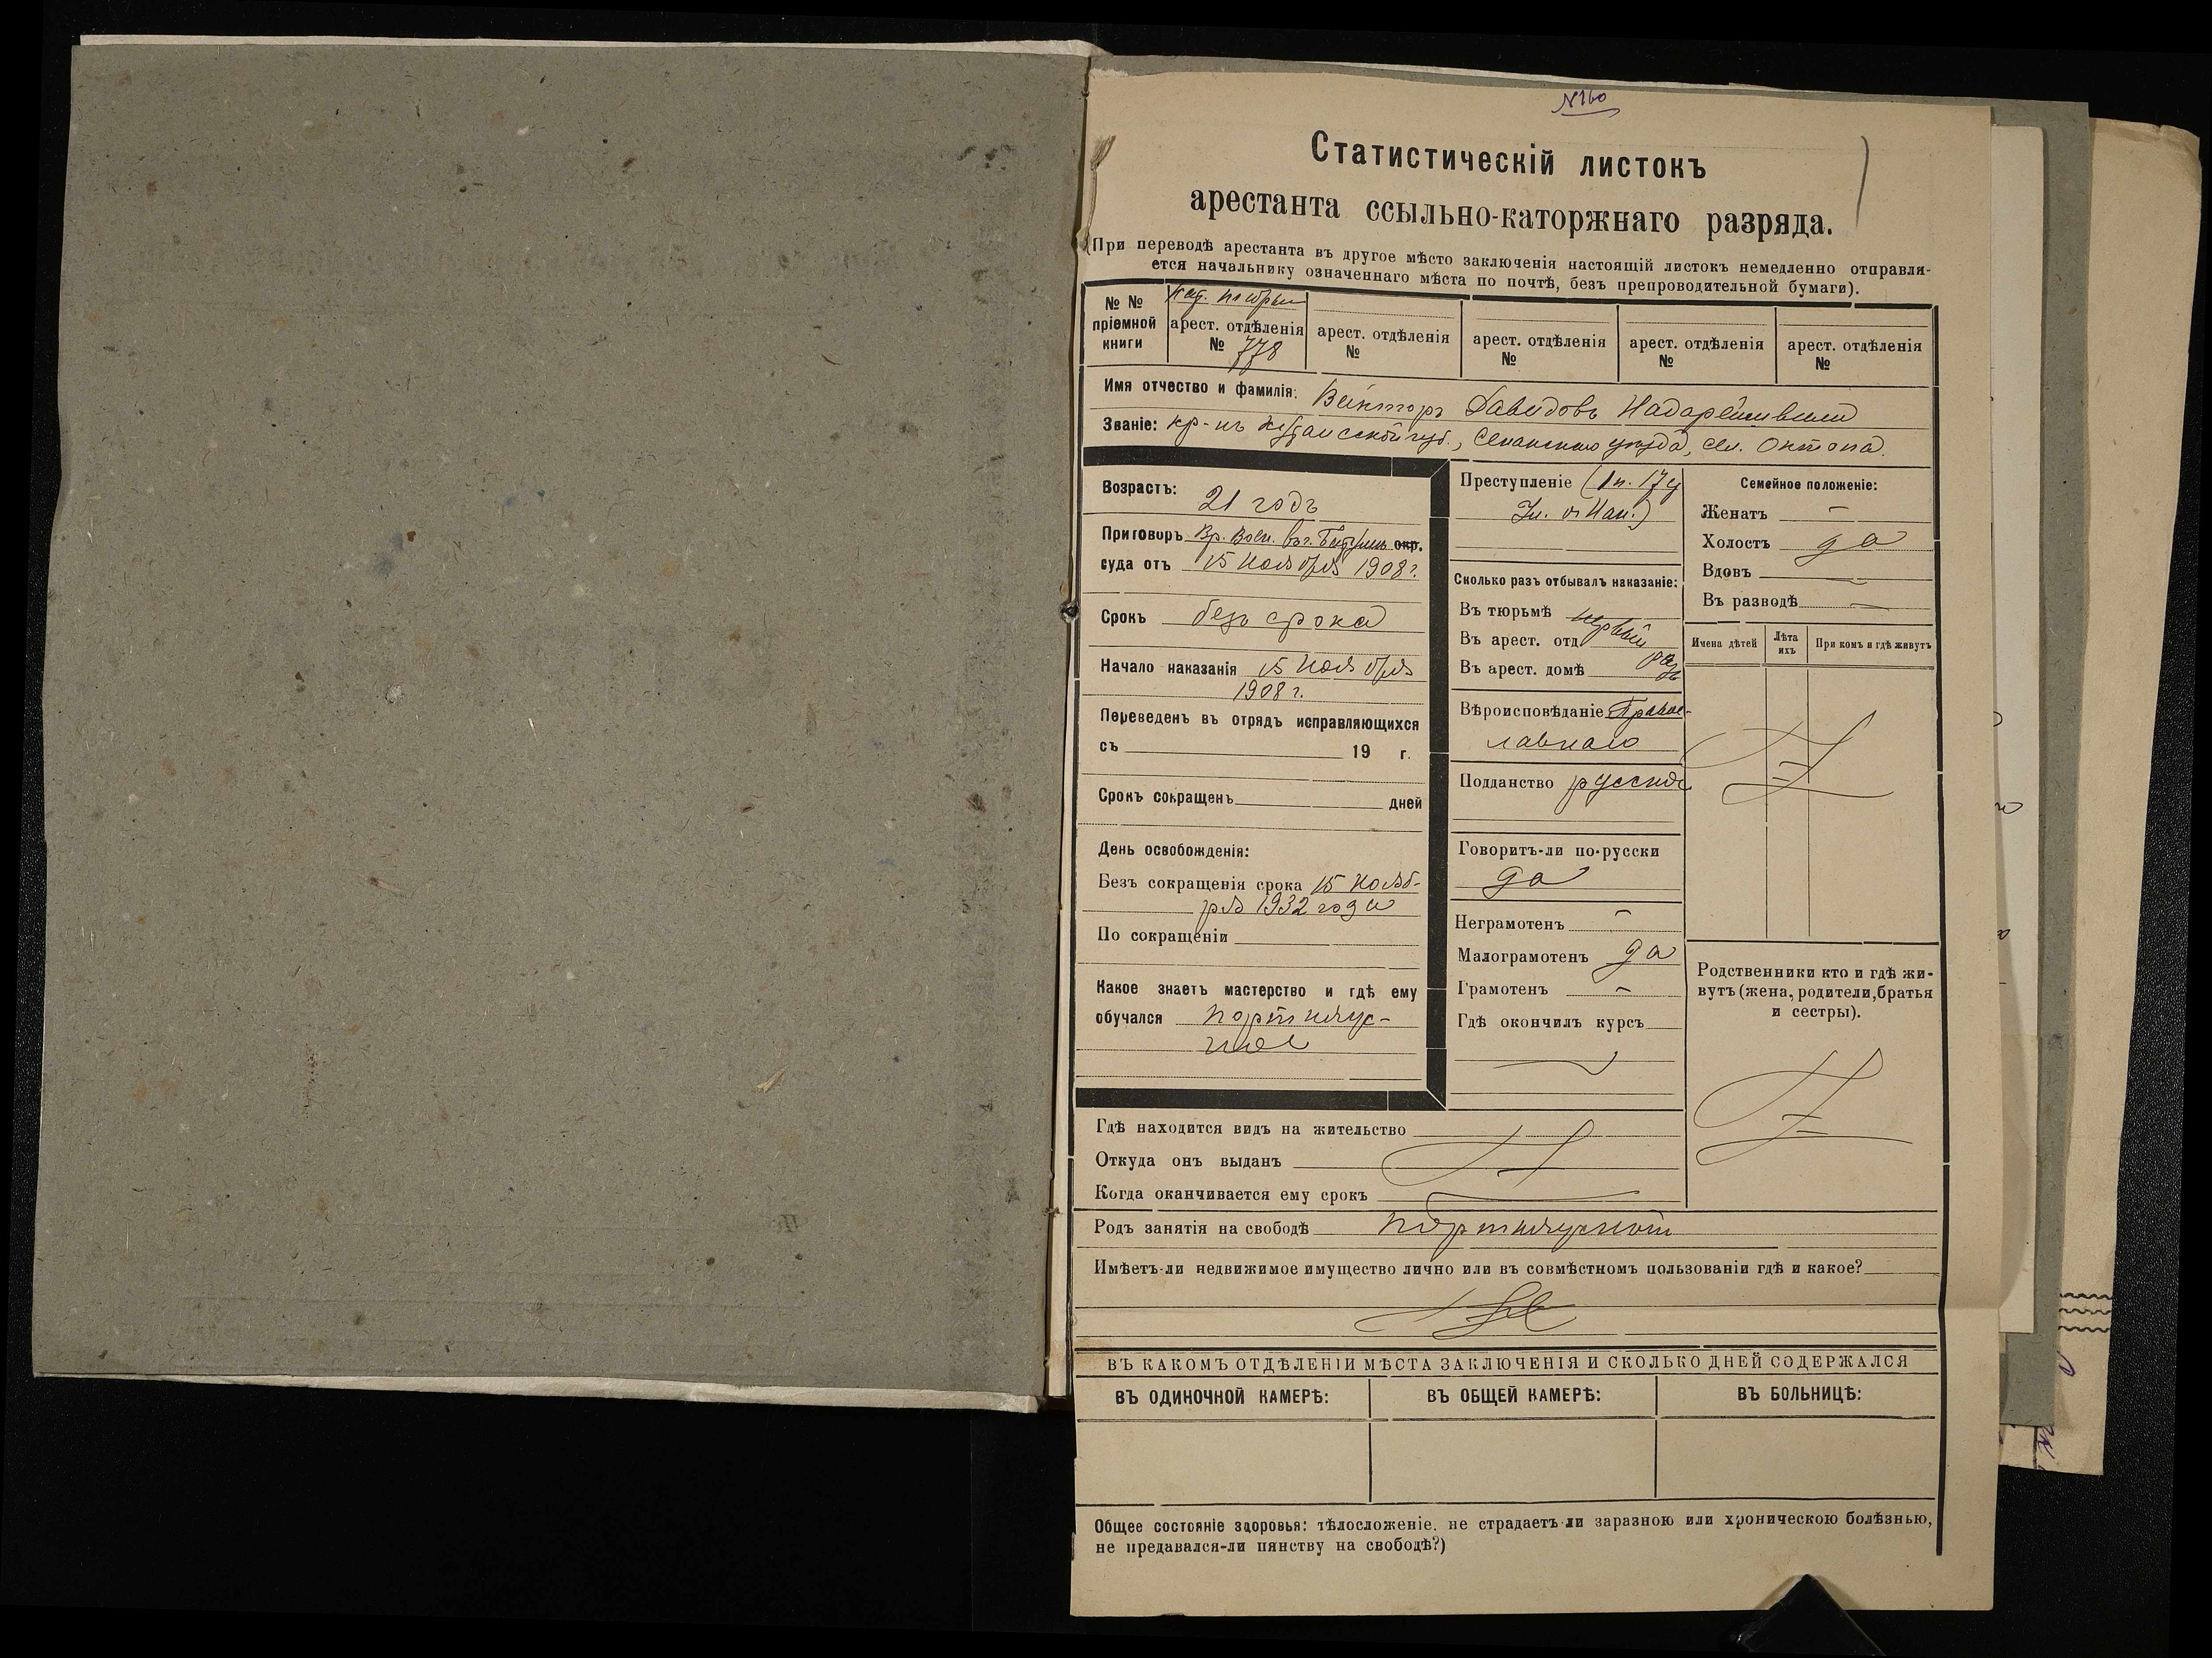 №160
Статистическій листокъ
арестанта ссыльно-каторжнаго разряда.
(При переводѣ арестанта въ другое мѣсто заключенія настоящій листокъ немедленно отправля-
ется начальнику означеннаго мѣста по почтѣ, безъ препроводительной бумаги).
№ №
пріемной
книги
арест. отдѣленія
№ 778
арест. отдѣленія
№
арест. отдѣленія
№
арест. отдѣленія
№
арест. отдѣленія
№
Имя отчество и фамилія: Викторъ Давидовъ Надарейшвили
Званіе: кр-нъ Кутаисской губ., Сенакскаго уѣзда, сел. Онтопа.
Возрастъ:
21 годъ
Приговоръ Вр. Воен. въ г. Батумѣ окр.
суда отъ 15 Ноября 1908 г.
Срокъ безъ срока
Начало наказанія 15 Ноября
1908 г.
Переведенъ въ отрядъ исправляющихся
съ 19 г.
Срокъ сокращенъ дней
День освобожденія:
Безъ сокращенія срока 15 Нояб-
ря 1932 года
По сокращеніи
Какое знаетъ мастерство и гдѣ ему
обучался портняж-
ное
Преступленіе (1 п. 17 ч
Ул. о Нак.)
Сколько разъ отбывалъ наказаніе:
Въ тюрьмѣ первый
Въ арест. отд
Въ арест. домѣ разъ
Вѣроисповѣданіе Правос-
лавнаго
Подданство русское
Говоритъ-ли по-русски
да
Неграмотенъ —
Малограмотенъ да
Грамотенъ —
Гдѣ окончилъ курсъ
Семейное положеніе:
Женатъ —
Холостъ да
Вдовъ —
Въ разводѣ —
Имена дѣтей
Лѣта
ихъ
При комъ и гдѣ живутъ
Родственники кто и гдѣ жи-
вутъ (жена, родители, братья
и сестры).
Гдѣ находится видъ на жительство
Откуда онъ выданъ
Когда оканчивается ему срокъ
Родъ занятія на свободѣ портняжной
Имѣетъ-ли недвижимое имущество лично или въ совмѣстномъ пользованіи гдѣ и какое?
ВЪ КАКОМЪ ОТДѢЛЕНІИ МѢСТА ЗАКЛЮЧЕНІЯ И СКОЛЬКО ДНЕЙ СОДЕРЖАЛСЯ
ВЪ ОДИНОЧНОЙ КАМЕРѢ:
ВЪ ОБЩЕЙ КАМЕРѢ:
ВЪ БОЛЬНИЦѢ:
Общее состояніе здоровья: тѣлосложеніе. не страдаетъ-ли заразною или хроническою болѣзнью,
не предавался-ли пянству на свободѣ?)